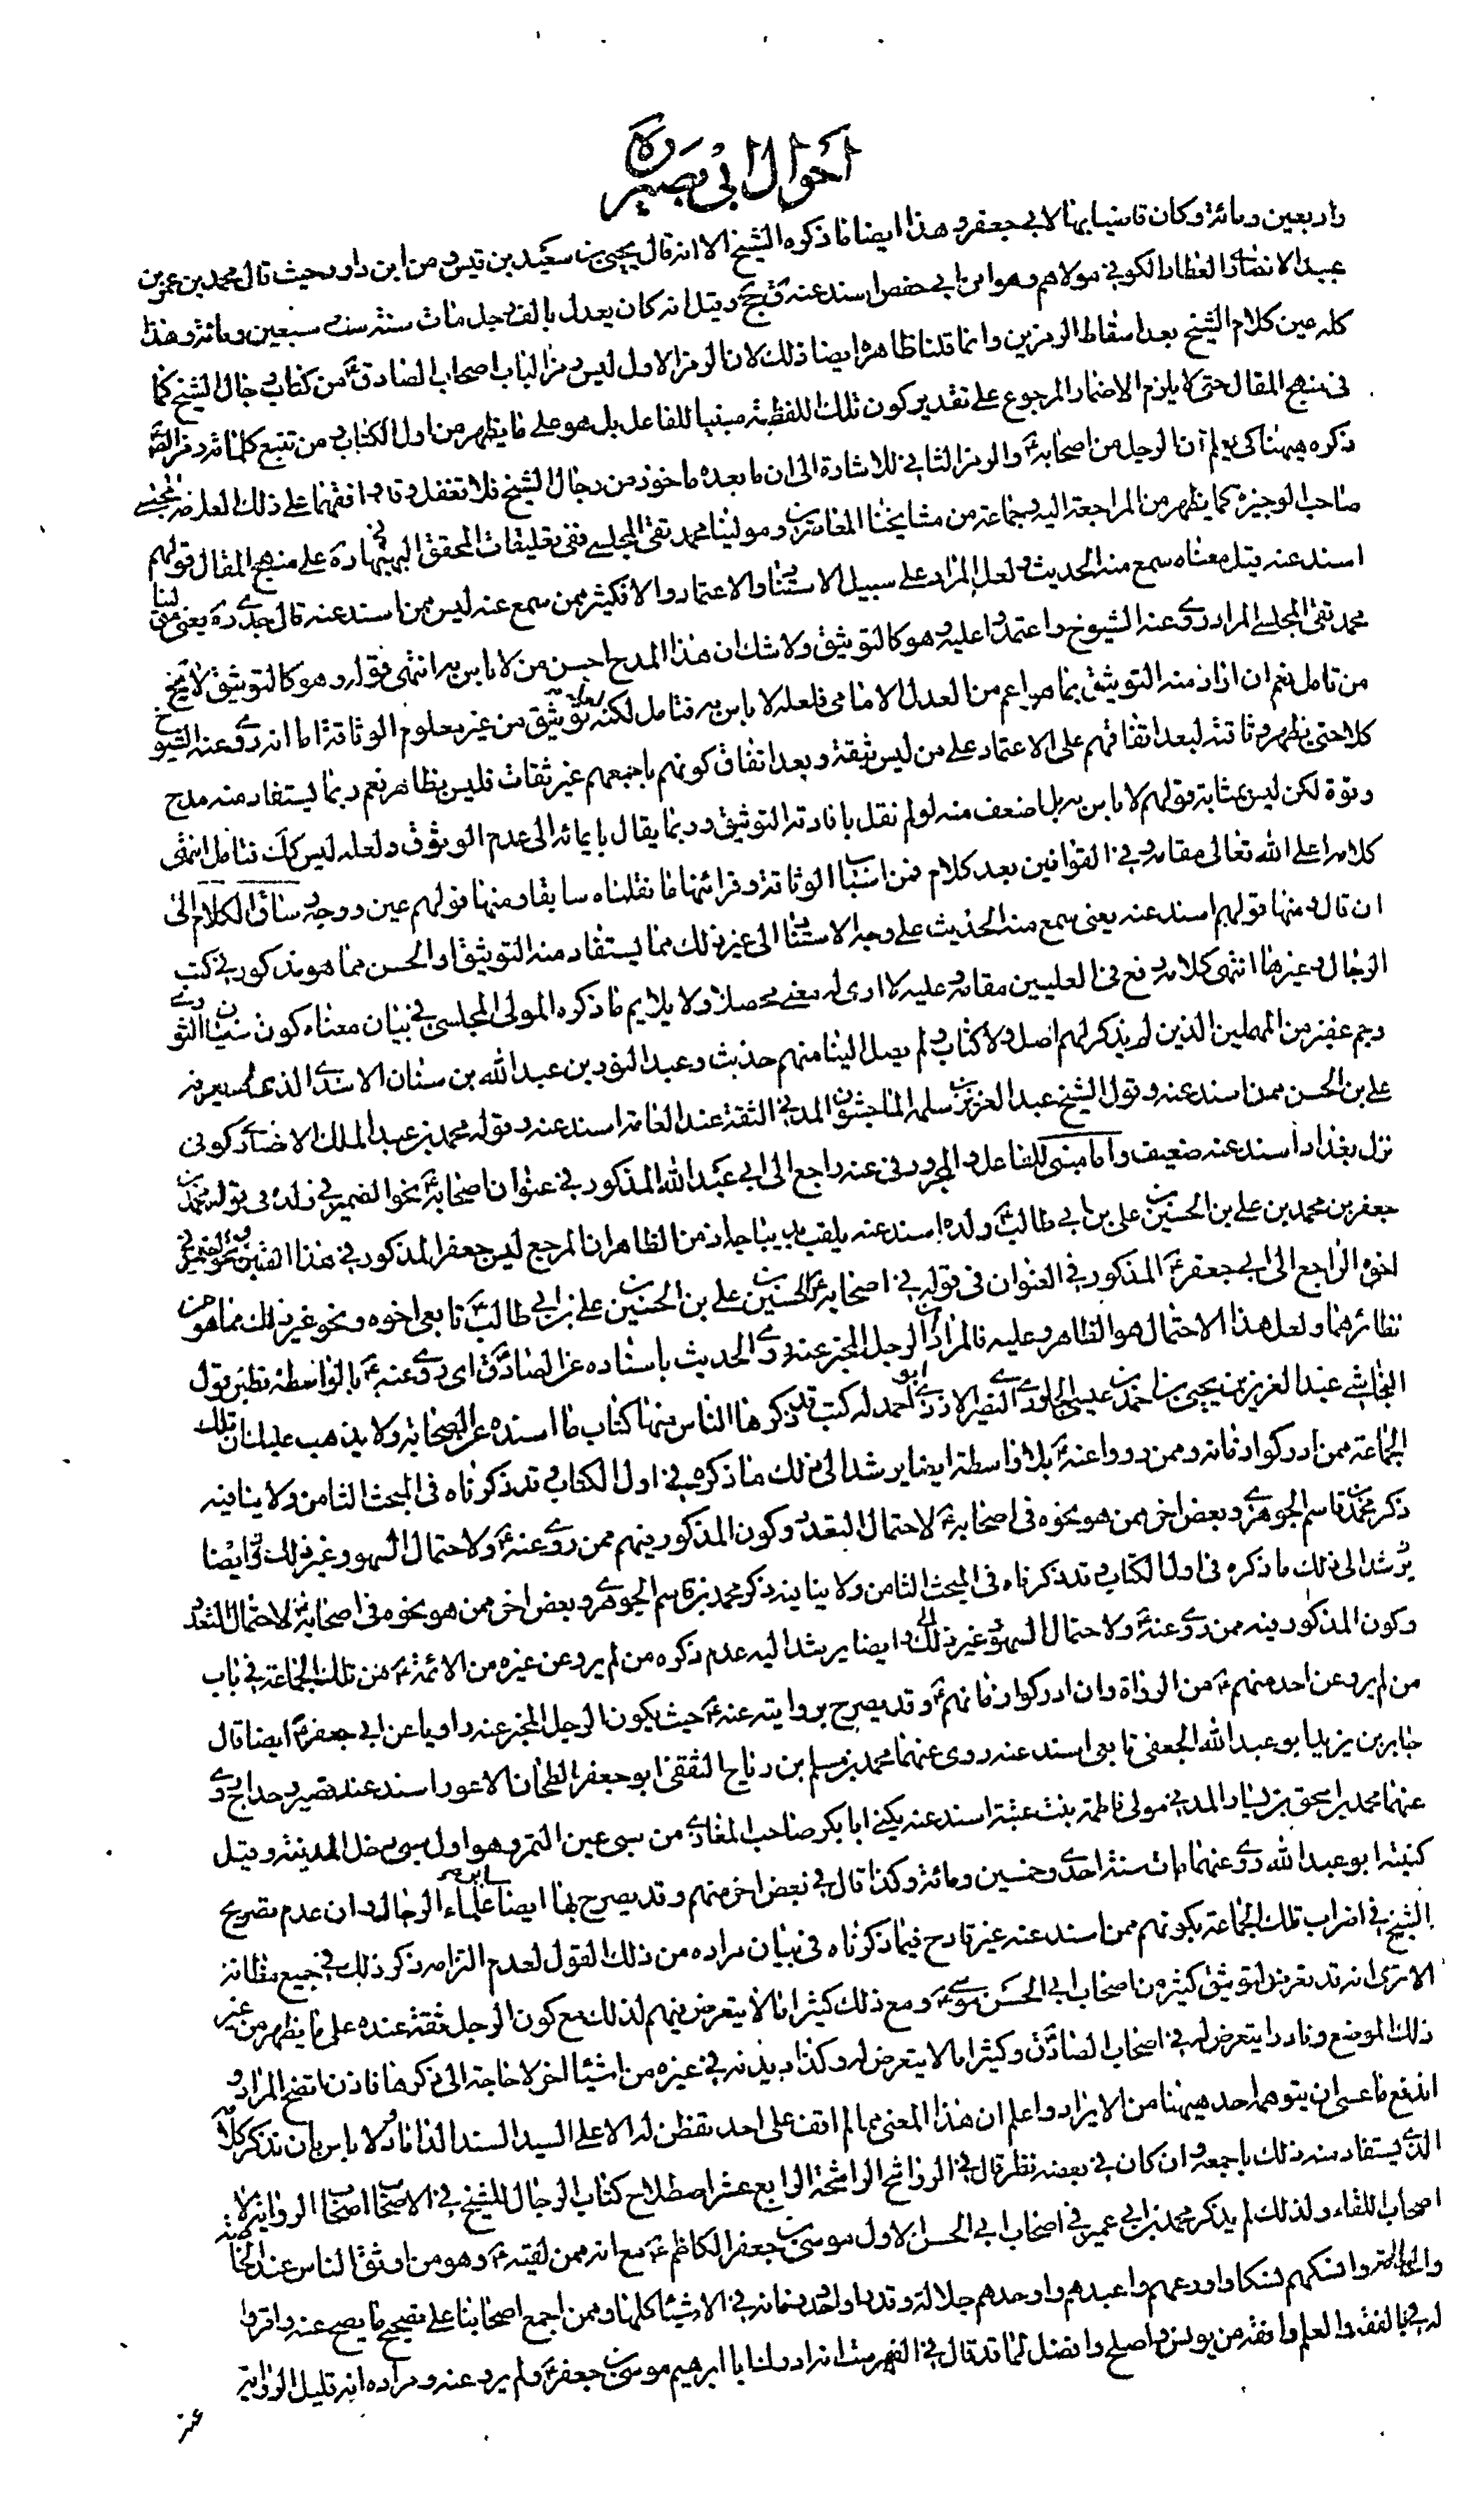 احوال ابی بصیر ره
واربعین ومائة وكان قاضيا بها لابی جعفر وهذا ايضا ما ذكره الشيخ الا انه قال يحيى بن سعيد بن قيس ومن ابن داود حيث قال محمد بن عمر بن
عبيد الانصاری العطار الكوفی مولاهم وهو ابن ابی حفص اسند عنه ق جخ وقيل انه كان يعدل بالف رجل مات سنة سبعين ومائة وهذا
كله عين كلام الشيخ بعد اسقاط الرمزين وانما قلنا ظاهره ايضا ذلك لان الرمز الاول ليس رمز الباب اصحاب الصادق ع من كتاب رجال الشيخ كما
فی منهج المقال حتى لا يلزم الاضمار المرجوع على تقدير كون تلك اللفظة مبنيا للفاعل بل هو على ما يظهر من اول الكتاب ومن تتبع كلماته رمز
ذكره ههنا كی يعلم ان الرجل من اصحابه ع والرمز الثانی للاشارة الى ان ما بعده ماخوذ من رجال الشيخ فلا تغفل وقد وافقهما على ذلك
صاحب الوجيزة كما يظهر من المراجعة اليه وجماعة من مشايخنا المعاصرين ومولينا محمد تقی المجلسی ففی تعليقات المحقق البهبهانی ره على منهج المقال قولهم
اسند عنه قيل معناه سمع منه الحديث ولعل المراد على سبيل الاستناد والاعتماد والا فكثير ممن سمع عنه ليس ممن اسند عنه قال جدی ره يعنی مولينا
محمد تقی المجلسی المراد روى عنه الشيوخ واعتمدوا عليه وهو كالتوثيق ولا شك ان هذا المدح احسن من لا باس به انتهى قوله وهو كالتوثيق لا يخ
من تامل نعم ان اراد منه التوثيق بما هو اعم من العدل الامامی فلعله لا باس به فتامل لكنه توثيق من غير معلوم الوثاقة اما انه روى عنه الشيوخ
كلا حتى يظهر وثاقته لبعد اتفاقهم على الاعتماد على من ليس بثقة وبعد اتفاق كونهم باجمعهم غير ثقات فليس بظاهر نعم ربما يستفاد منه مدح
وقوة لكن ليس بمثابة قولهم لا باس به بل اضعف منه لو لم نقل بافادته التوثيق وربما يقال بايمائه الى عدم الوثوق ولعله ليس كك فتامل انتهى
كلامه اعلى الله تعالى مقامه وفی القوانين بعد كلام فمن اسباب الوثاقة وقرائنها ما نقلناه سابقا ومنها قولهم عين ووجه وساق الكلام الى
ان قال ومنها قولهم اسند عنه يعنی سمع منه الحديث على وجه الاستناد الى غير ذلك مما يستفاد منه التوثيق او الحسن مما هو مذكور فی كتب
الرجال وغيرها انتهى كلامه رفع فی العليين مقامه وعليه لا ارى له معنى محصلا ولا يلايم ما ذكره المولى المجلسی فی بيان معناه كون سفيان الثوری
وجم غفير من المهملين الذين لم يذكر لهم اصل ولا كتاب ولم يصل الينا منهم حديث وعبد النور بن عبد الله بن سنان الاسدی الذی
علی بن الحسن ممن اسند عنه وقول الشيخ عبد العزيز بن سلمة الماجشون المدنی الثقة عند العامة اسند عنه وقوله محمد بن عبد الملك الانصاری كوفی
نزل بغداد اسند عنه ضعيف واما مبنی للفاعل والمجرور فی عنه راجع الى ابی عبد الله المذكور فی عنوان اصحابه ع نحو الضمير فی ولده فی قوله محمد بن
جعفر بن محمد بن علی بن الحسين بن علی بن ابی طالب ع ولده اسند عنه يلقب ديباجه اذ من الظاهر ان المرجع ليس جعفر المذكور فی هذا
اخوه الراجع الى ابی جعفر ع المذكور فی العنوان فی قوله فی اصحابه ع الحسين بن علی بن الحسين بن علی بن ابی طالب ع تابعی اخوه ونحو غير ذلك مما هو من
نظائرهما ولعل هذا الاحتمال هو الظاهر وعليه فالمراد ان الرجل المخبر عنه روى الحديث باسناده عن الصادق ع ای روى عنه ع بالواسطة نظير قول
النجاشی عبد العزيز بن يحيى بن احمد بن عيسى الجلودی الازدی ابو احمد له كتب قد ذكرها الناس منها كتاب ما اسنده عن الصحابة ولا يذهب عليك ان تلك
الجماعة ممن ادركوا زمانه وممن رووا عنه ع بلا واسطة ايضا يرشد الى ذلك ما ذكره فی اول الكتاب وقد ذكرناه فی المبحث الثامن ولا ينافيه
ذكر محمد بن قاسم الجوهری وبعض اخر ممن هو نحوه فی اصحابه ع لاحتمال التعدد وكون المذكور فيهم ممن روى عنه ع ولاحتمال السهو وغير ذلك وايضا
يرشد الى ذلك ما ذكره فی اول الكتاب وقد ذكرناه فی المبحث الثامن ولا ينافيه ذكر محمد بن قاسم الجوهری وبعض اخر ممن هو نحوه فی اصحابه ع لاحتمال التعدد
وكون المذكور فيه ممن روى عنه ع ولاحتمال السهو وغير ذلك وايضا يرشد اليه عدم ذكره من لم يرو عن غيره من الائمة ع من تلك الجماعة فی باب
من لم يرو عن احد منهم ع من الرواة وان ادركوا زمانهم ع وقد يصرح بروايته عنه ع حيث يكون الرجل المخبر عنه راويا عن ابی جعفر ع ايضا قال
جابر بن يزيد ابو عبد الله الجعفی تابعی اسند عنه روى عنهما محمد بن مسلم بن رباح الثقفی ابو جعفر الطحان الاعور اسند عنه قصير دحداح روى
عنهما محمد بن اسحق بن يسار المدنی مولى فاطمة بنت عتبة اسند عنه يكنى ابا بكر صاحب المغازی من سبی عين التمر وهو اول سبی دخل المدينة وقيل
كنيته ابو عبد الله روى عنهما مات سنة احدى وخمسين ومائة وكذا قال فی بعض اخر منهم وقد يصرح بها ايضا علماء الرجال وان عدم تصريح
الشيخ فی اضراب تلك الجماعة بكونهم ممن اسند عنه غير قادح فيما ذكرناه فی بيان مراده من ذلك القول لعدم التزامه ذكر ذلك فی جميع مظانه
الا ترى انه قد تعرض لتوثيق كثير من اصحاب ابی الحسن موسى ع ومع ذلك كثيرا ما لا يتعرض فيهم لذلك مع كون الرجل ثقة عنده على ما يظهر من غير
ذلك الموضع ونادرا يتعرض له فی اصحاب الصادق ع وكثيرا ما لا يتعرض له وكذا ديدنه فی غيره من اشياء اخر لا حاجة الى ذكرها فاذن اتضح المراد و
اندفع ما عسى ان يتوهم احد ههنا من الايراد واعلم ان هذا المعنى مما لم اقف على احد تفطن له الا على السيد السند الداماد ولا باس بان نذكر كلامه
الذی يستفاد منه ذلك باجمعه وان كان فی بعضه نظر قال فی الرواشح الراشحة الرابع عشر اصطلاح كتاب الرجال للشيخ فی الاصحاب اصحاب الرواية لا
اصحاب اللقاء ولذلك لم يذكر محمد بن ابی عمير فی اصحاب ابی الحسن الاول موسى بن جعفر الكاظم ع مع انه ممن لقيه ع وهو من اوثق الناس عند الخاصة
والعامة وانسكهم نسكا واورعهم واعبدهم واوحدهم جلالة وقدرا واوحد زمانه فی الاشياء كلها وممن اجمع اصحابنا على تصحيح ما يصح عنه واقروا
له بالفقه والعلم وافقه من يونس واصلح وافضل لما قد قال فی الفهرست انه ادرك ابا ابراهيم موسى بن جعفر ع ولم يرو عنه ومراده انه قليل الرواية
عنه